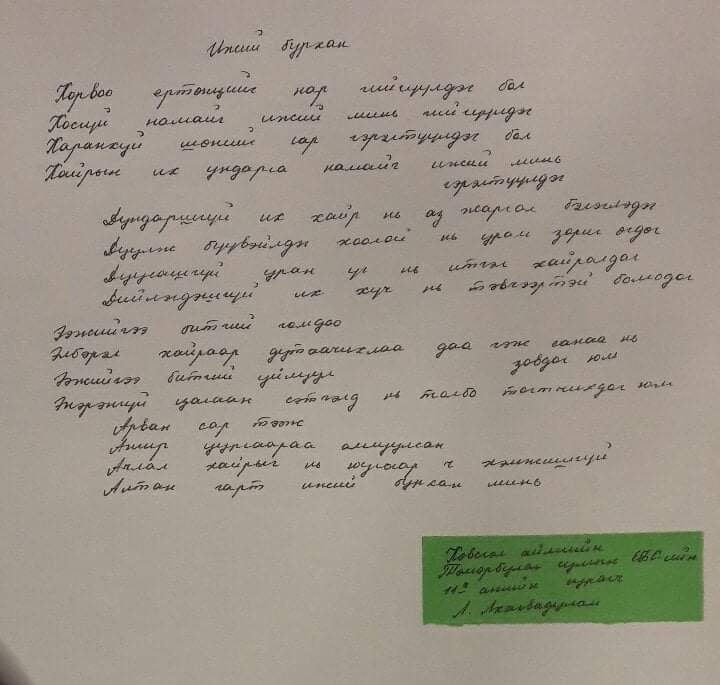 Ижий бурхан
Хорвоо ертөнцийг нар гийгүүлдэг бол
Хосгүй намайг ижий минь гийгүүлдэг
Харанхуй шөнийг сар гэрэлтүүлдэг бол
Хайрын их ундарга намайг ижий минь
гэрэлтүүлдэг
Дундаршгүй их хайр нь аз жаргал бэлэглэдэг
Дуулж бүүвэйлдэг хоолой нь урам зориг өгдөг
Дуугашгүй уран үг нь итгэл хайрладаг
Дийлэгдэшгүй их хүч нь тэвчээртэй болгодог
Ээжийгээ битгий гомдоо
Элбэрэл хайраар дутаачихлаа даа гэж санаа нь
зовдог юм
Ээжийгээ битгий үймүүл
Энэрэнгүй цагаан сэтгэлд нь толбо тогтчихдог юм
Арван сар тээж
Ачир уургаараа амлуулсан
Ачлал хайрыг нь юугаар ч хэмжишгүй
Алтан гарт ижий бурхан минь
Хөвсгөл аймгийн
Төмөрбулаг сумын ЕБС-ийн
11а ангийн сурагч
Л. Лхагвадулам